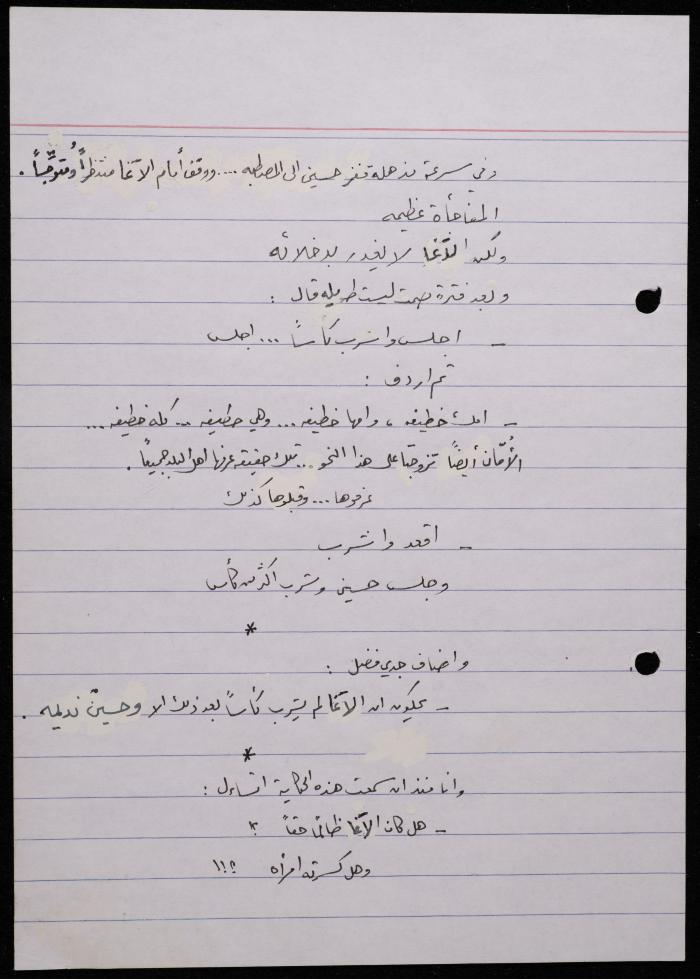 وفي سرعة مذهلة قفز حسين الى المصطبه .... ووقف أمام الآغا منتظراً ومُتوجِّساً .
المفاجأة عظيمه
ولكن الآغا لا يغدر بدخلائه
وبعد فترة صمت ليست طويله قال :
- اجلس واشرب كأساً ... اجلس
ثم اردف :
- امك خطيفه ، وامها خطيفه ... وهي خطيفه ... كله خطيفه ...
الأُمّان أيضاً تزوجتا على هذا النحو ... تلك حقيقه عرفها اهل البلد جميعاً .
عرفوها ... وقبلوها كذلك
- اقعد واشرب
وجلس حسين وشرب اكثر من كأس
*
واضاف جدي فضل :
- يحكون ان الآغا لم يشرب كأساً بعد ذلك الا وحسينٌ نديمه .
*
وانا منذ ان سمعت هذه الحكاية اتساءل :
- هل كان الآغا ظالماً حقاً ؟
وهل كسرته امرأه ؟!!